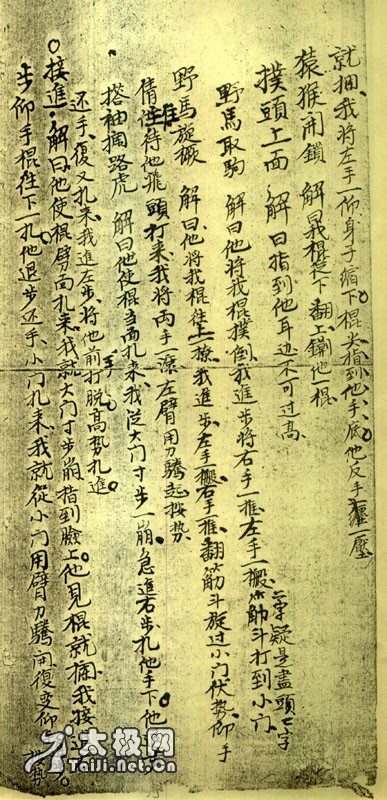 就捆、我將左手一仰身子縮下。棍尖指到他手底他反手纏一壓
猿猴開鎖 解曰我棍從下翻上鎖他棍
撲頭上面 解曰指到他耳边不可过高
野馬取駒 解曰他將我棍撲倒我進步將右手一推左手一搬觔斗打到小门
筋字疑是盡頭二字
野馬旋橛 解曰他將我棍往上一撩我進步左手搬右手推、翻筋斗旋过小门伏势仰手
倩他往待他飛頭打來、我將両手一滚左臂用力騰起按势
搭袖捆路虎 解曰他使棍当面扎來、我從大门寸步一崩、急進右步扎他手下他
还手、復又扎來、我進左步、將他前手打脱、高势扎進。
接進。解曰、他使棍劈面扎來、我就大门寸步崩指到臉上。他見棍就捆我接進
步仰手棍往下一扎、他退步还手、小门扎來、我就從小门用臂力騰開復变仰势
太极网
Taiji.Net.Cn